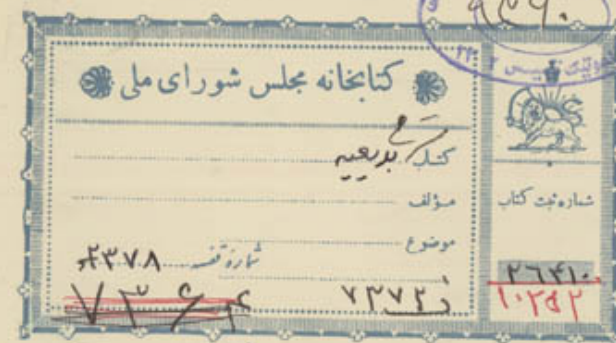 ۹۴۹۰
کتابخانه مجلس شورای ملی
کتاب شرح بدیعیه
مؤلف
موضوع
شماره قفسه ۲۳۷۸
۷۳۶۴
۷۳۷۳
شماره ثبت کتاب
۲۶۴۱۰
۱۰۲۵۲